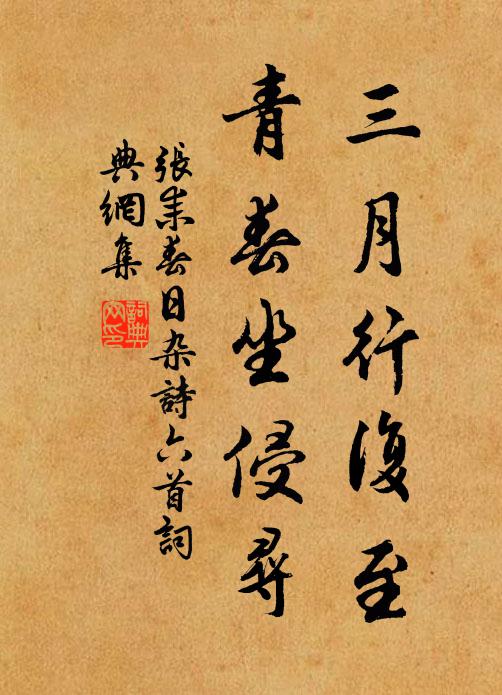 三月行復至
青春坐侵尋
張耒春日杂詩六首詞
典網集
詞典
网印